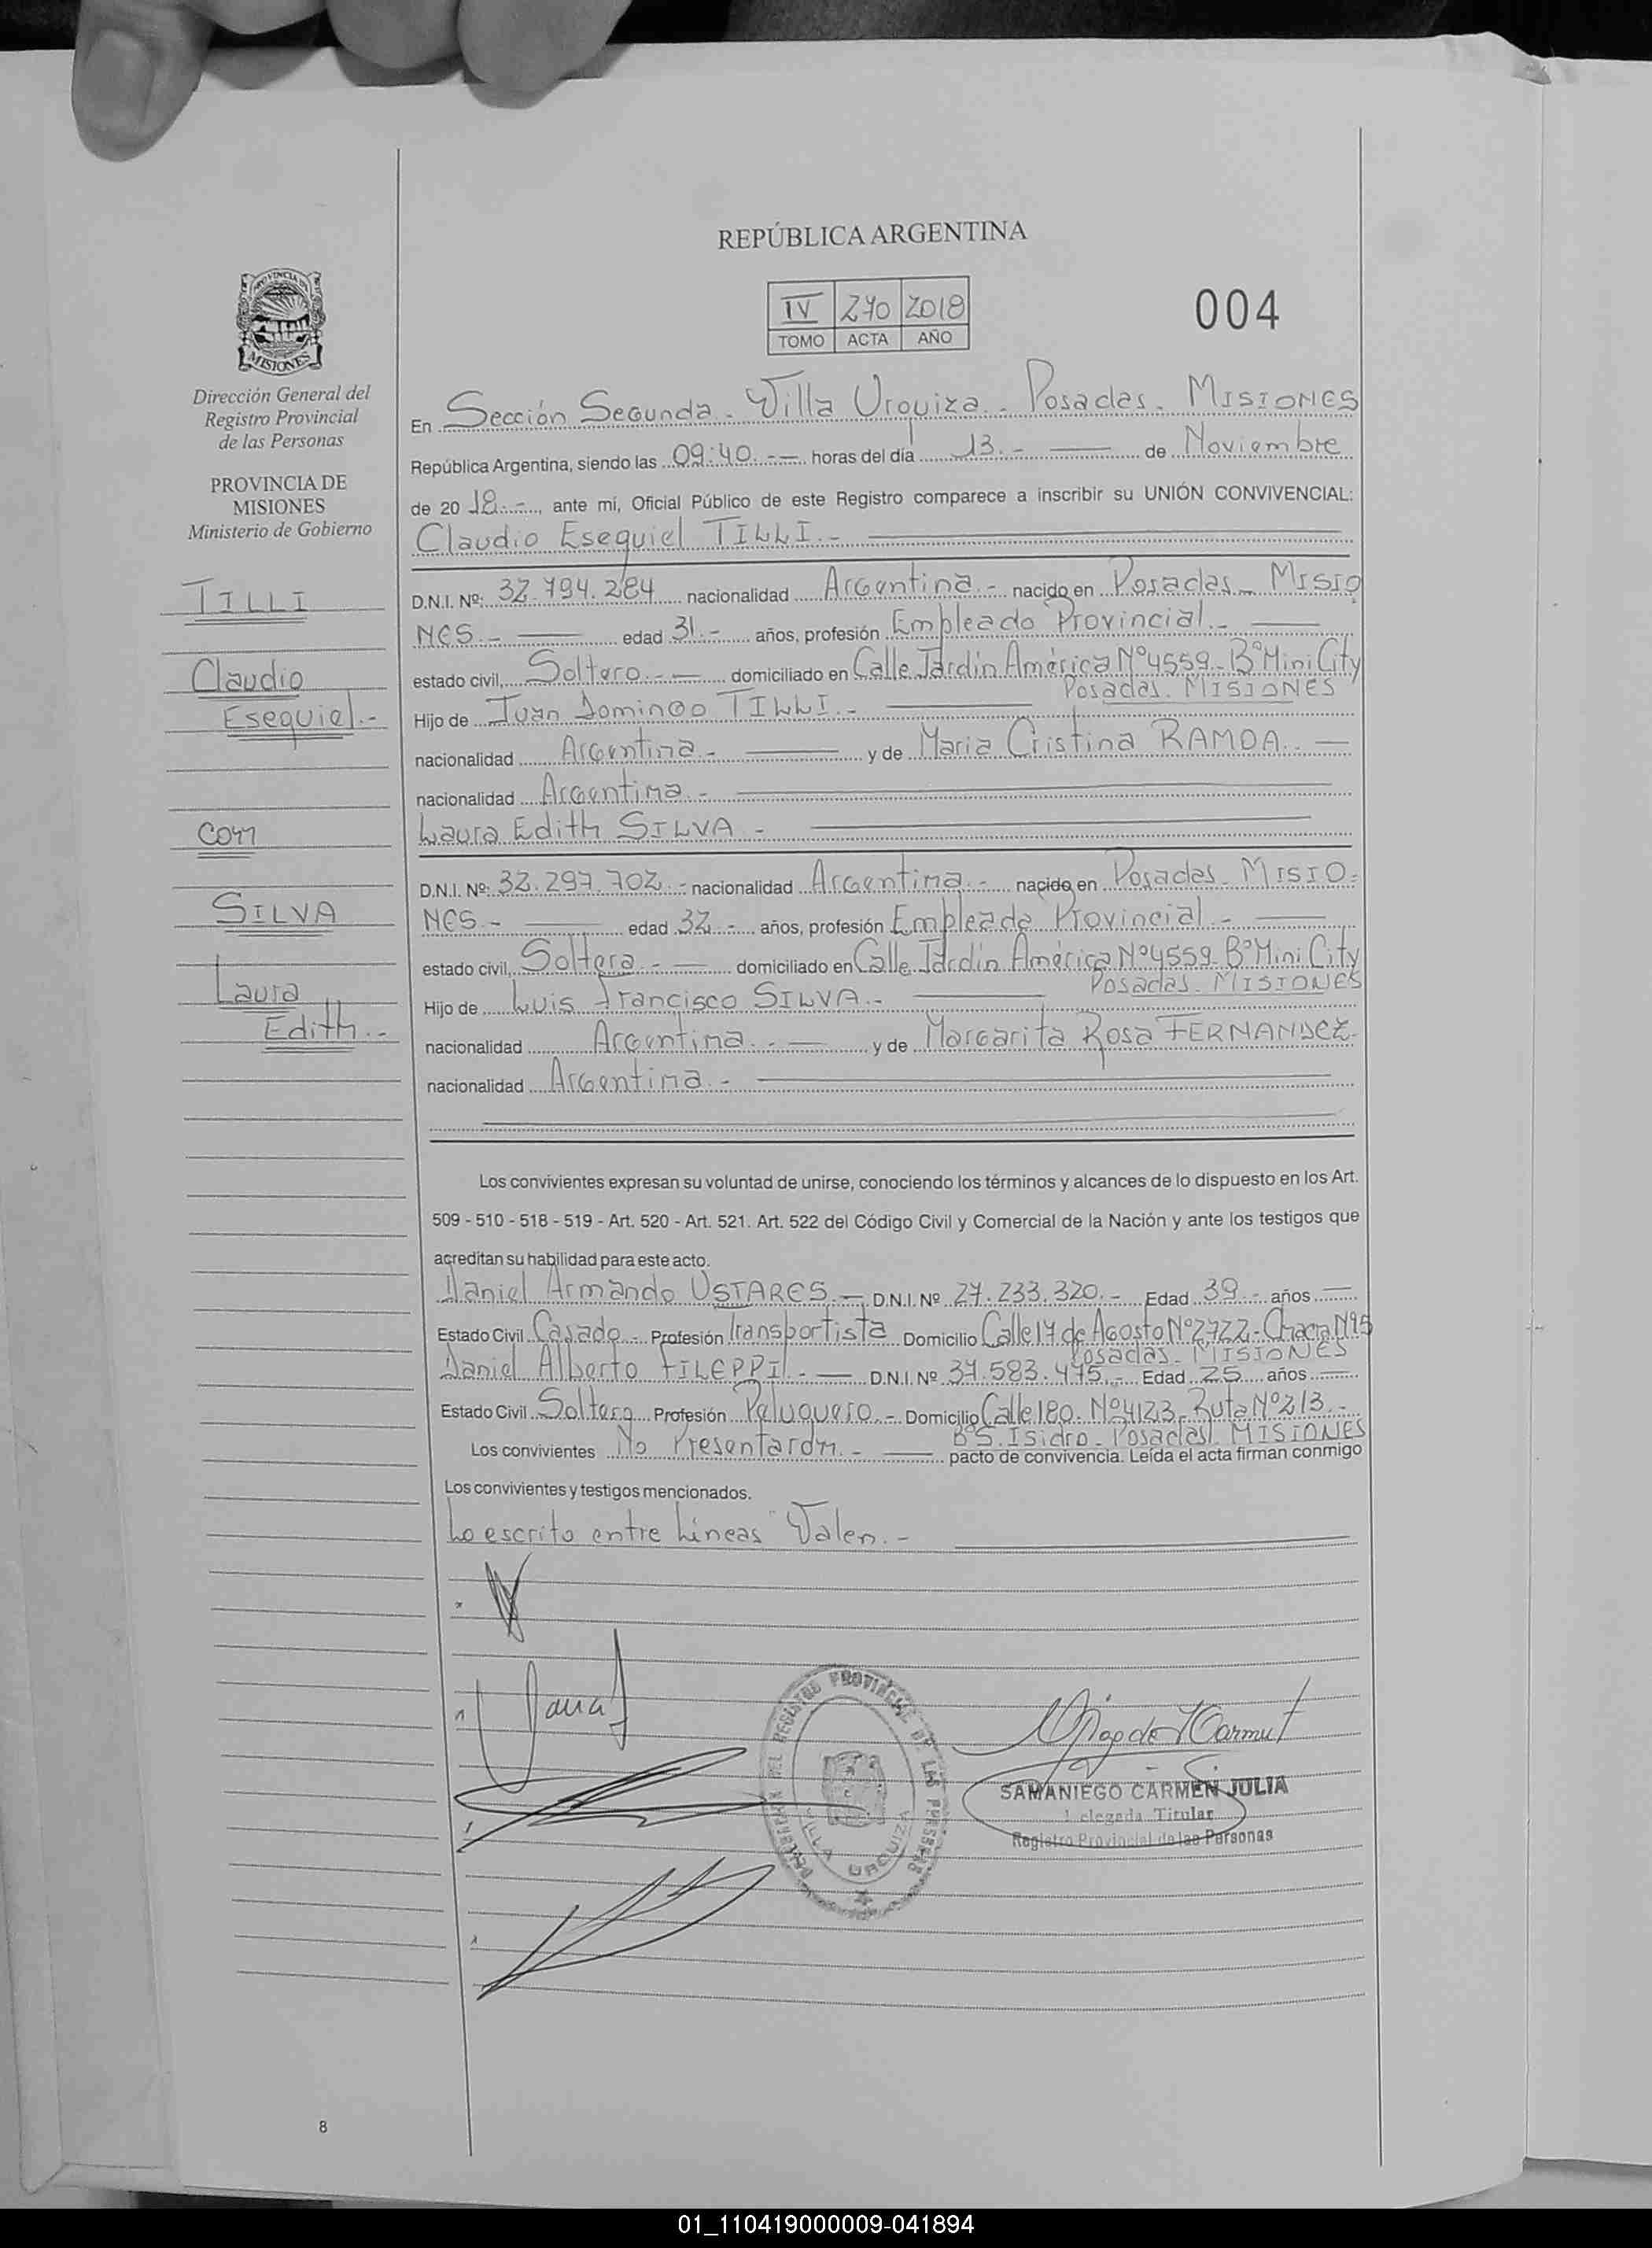 REPÚBLICA ARGENTINA
IV 270 2018
TOMO ACTA AÑO
004
PROVINCIA DE
MISIONES
Dirección General del
Registro Provincial
de las Personas
PROVINCIA DE
MISIONES
Ministerio de Gobierno
TILLI
Claudio
Esequiel.-
con
SILVA
Laura
Edith.-
En Sección Segunda - Villa Urquiza - Posadas - MISIONES
República Argentina, siendo las 09:40.-- horas del día 13.- de Noviembre
de 20 18.-, ante mí, Oficial Público de este Registro comparece a inscribir su UNIÓN CONVIVENCIAL:
Claudio Esequiel TILLI.-
D.N.I. Nº: 32.794.284 nacionalidad Argentina.- nacido en Posadas - MISIO
NES.- edad 31.- años, profesión Empleado Provincial.-
estado civil, Soltero.- domiciliado en Calle Jardín América Nº4559-Bº Mini City
Posadas. MISIONES
Hijo de Juan Domingo TILLI.-
nacionalidad Argentina.- y de Maria Cristina RAMOA.-
nacionalidad Argentina.-
Laura Edith SILVA.-
D.N.I. Nº: 32.297.702.- nacionalidad Argentina.- nacido en Posadas - MISIO-
NES.- edad 32.- años, profesión Empleada Provincial.-
estado civil, Soltera.- domiciliado en Calle Jardín América Nº4559-Bº Mini City
Posadas. MISIONES
Hijo de Luis Francisco SILVA.-
nacionalidad Argentina.- y de Margarita Rosa FERNANDEZ-
nacionalidad Argentina.-
Los convivientes expresan su voluntad de unirse, conociendo los términos y alcances de lo dispuesto en los Art.
509 - 510 - 518 - 519 - Art. 520 - Art. 521. Art. 522 del Código Civil y Comercial de la Nación y ante los testigos que
acreditan su habilidad para este acto.
Daniel Armando USTARES.- D.N.I. Nº 27.233.320.- Edad 39.- años
Estado Civil Casado.- Profesión Transportista Domicilio Calle 17 de Agosto Nº2722-Chacra Nº95
Posadas - MISIONES
Daniel Alberto FILEPPI.- D.N.I. Nº 37.583.475.- Edad 25 años
Estado Civil Soltero Profesión Peluquero.- Domicilio Calle 180. Nº4123-Ruta Nº213.-
Bº S. Isidro - Posadas. MISIONES
Los convivientes No Presentaron.- pacto de convivencia. Leída el acta firman conmigo
Los convivientes y testigos mencionados.
Lo escrito entre Líneas "Valen.-
DELEGACION DEL REGISTRO PROVINCIAL DE LAS PERSONAS
VILLA URQUIZA
SAMANIEGO CARMEN JULIA
Delegada Titular
Registro Provincial de las Personas
8
01_110419000009-041894